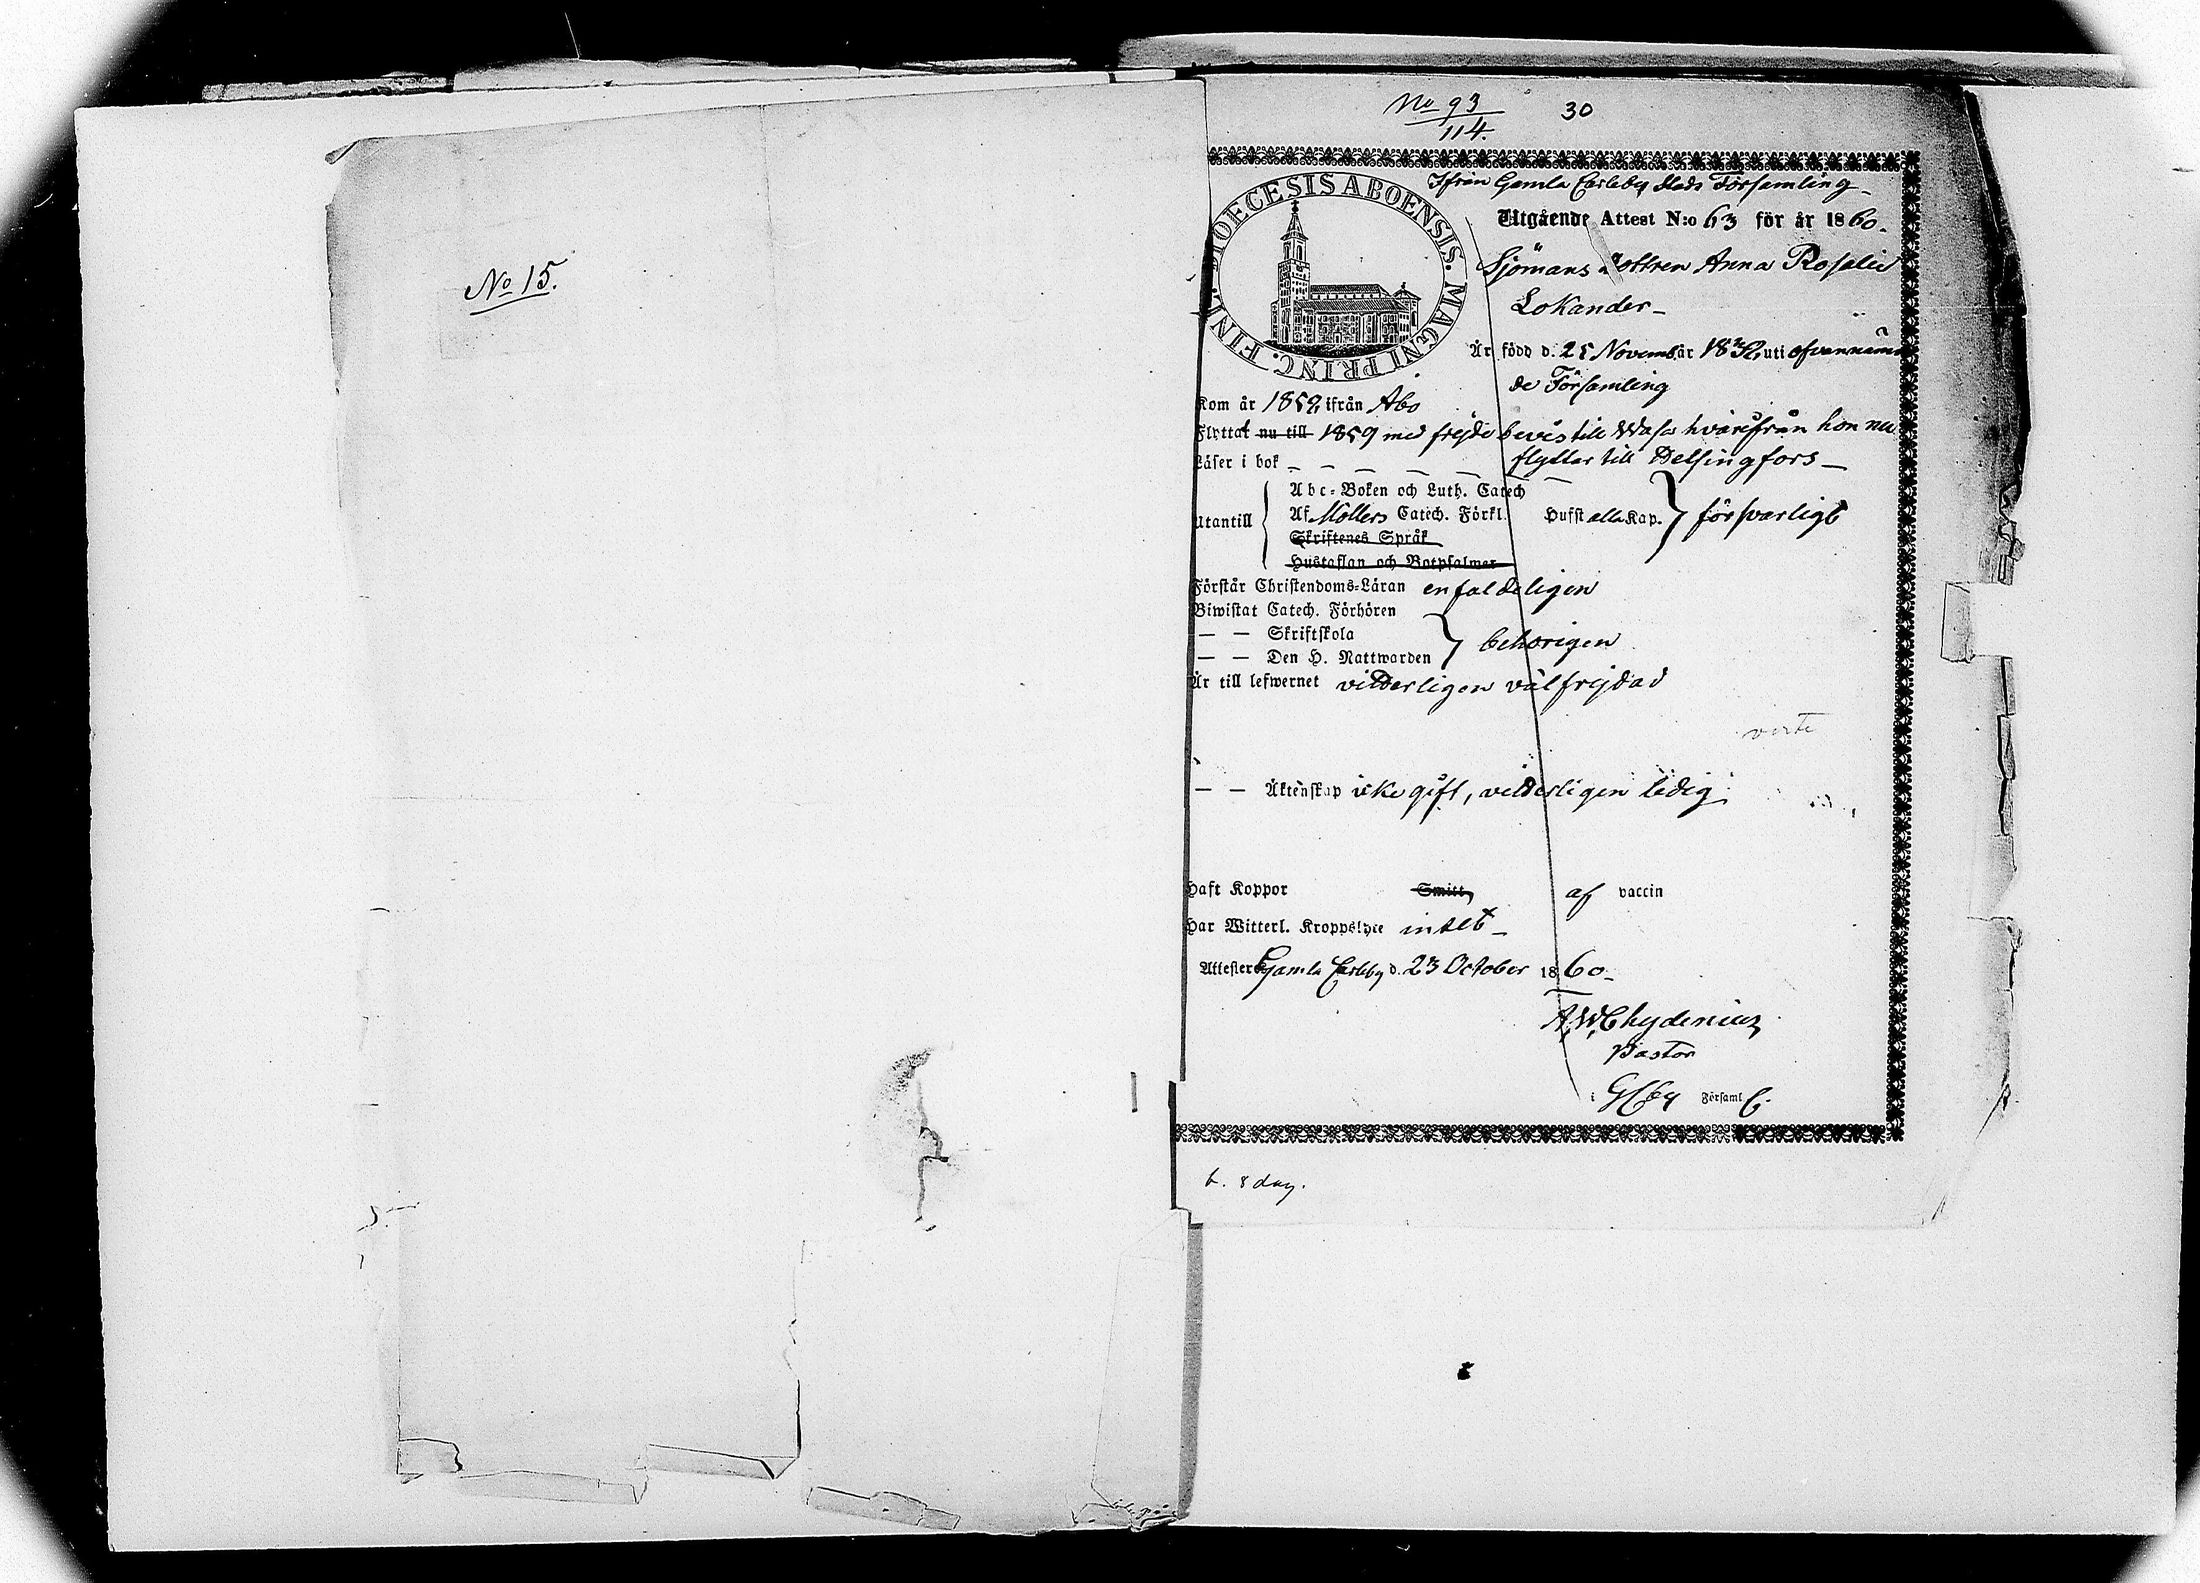 No 15.
No 93 30
114.
DIOECESIS ABOENSIS. MAGNI PRINC. FINL.
Ifrån Gamla Carleby Stads Församling
Utgående Attest N:o 63 för år 1860.
Sjömans Dottren Anna Rosalie
Lokander
Är född d. 25 Novemb. år 1832, uti ofvannämn
de Församling
Kom år 1852 ifrån Åbo
Flyttat nu till 1859 med frejdebevis till Wasa hvarifrån hon nu
Läser i bok flyttar till Helsingfors
Abc-Boken och Luth. Catech
Utantill Af Möllers Catech. Förkl. Hufst alla Kap. försvarligt
Skriftenes Språk
Hustaflan och Botpsalmer
Förstår Christendoms-Läran enfaldeligen
Biwistat Catech. Förhören
— — Skriftskola behörigen
— — Den H. Nattwarden
Är till lefwernet vitterligen välfrejdad
verte
— — Äktenskap icke gift, vitterligen ledig
Haft Koppor Smitt, af vaccin
Har Witterl. Kroppslyte intet
Attesterar Gamla Carleby d. 23 October 1860.
A.W. Chydenius
Pastor
i GCby Församl
b. 8 day.